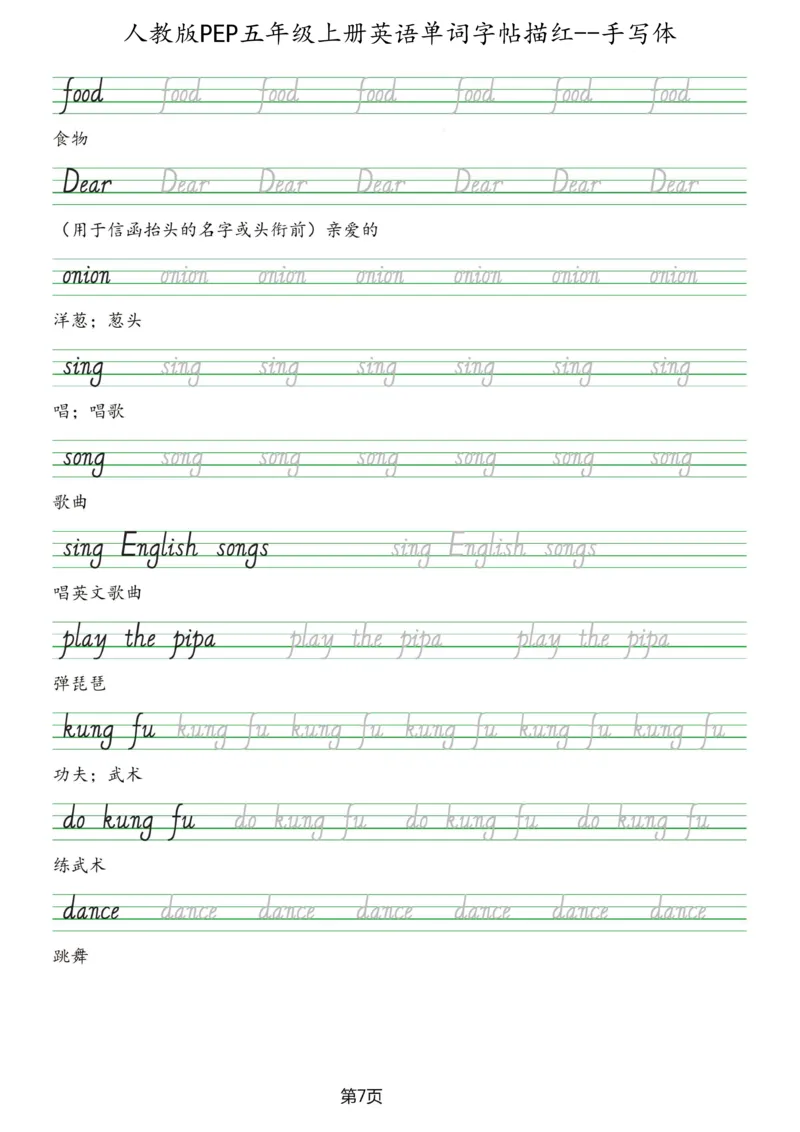 人教版PEP五年级上册英语单词字帖描红--手写体
food food food food food food food
食物
Dear Dear Dear Dear Dear Dear Dear
（用于信函抬头的名字或头衔前）亲爱的
onion onion onion onion onion onion onion
洋葱；葱头
sing sing sing sing sing sing sing
唱；唱歌
song song song song song song song
歌曲
sing English songs sing English songs
唱英文歌曲
play the pipa play the pipa play the pipa
弹琵琶
kung fu kung fu kung fu kung fu kung fu kung fu
功夫；武术
do kung fu do kung fu do kung fu do kung fu
练武术
dance dance dance dance dance dance dance
跳舞
第7页